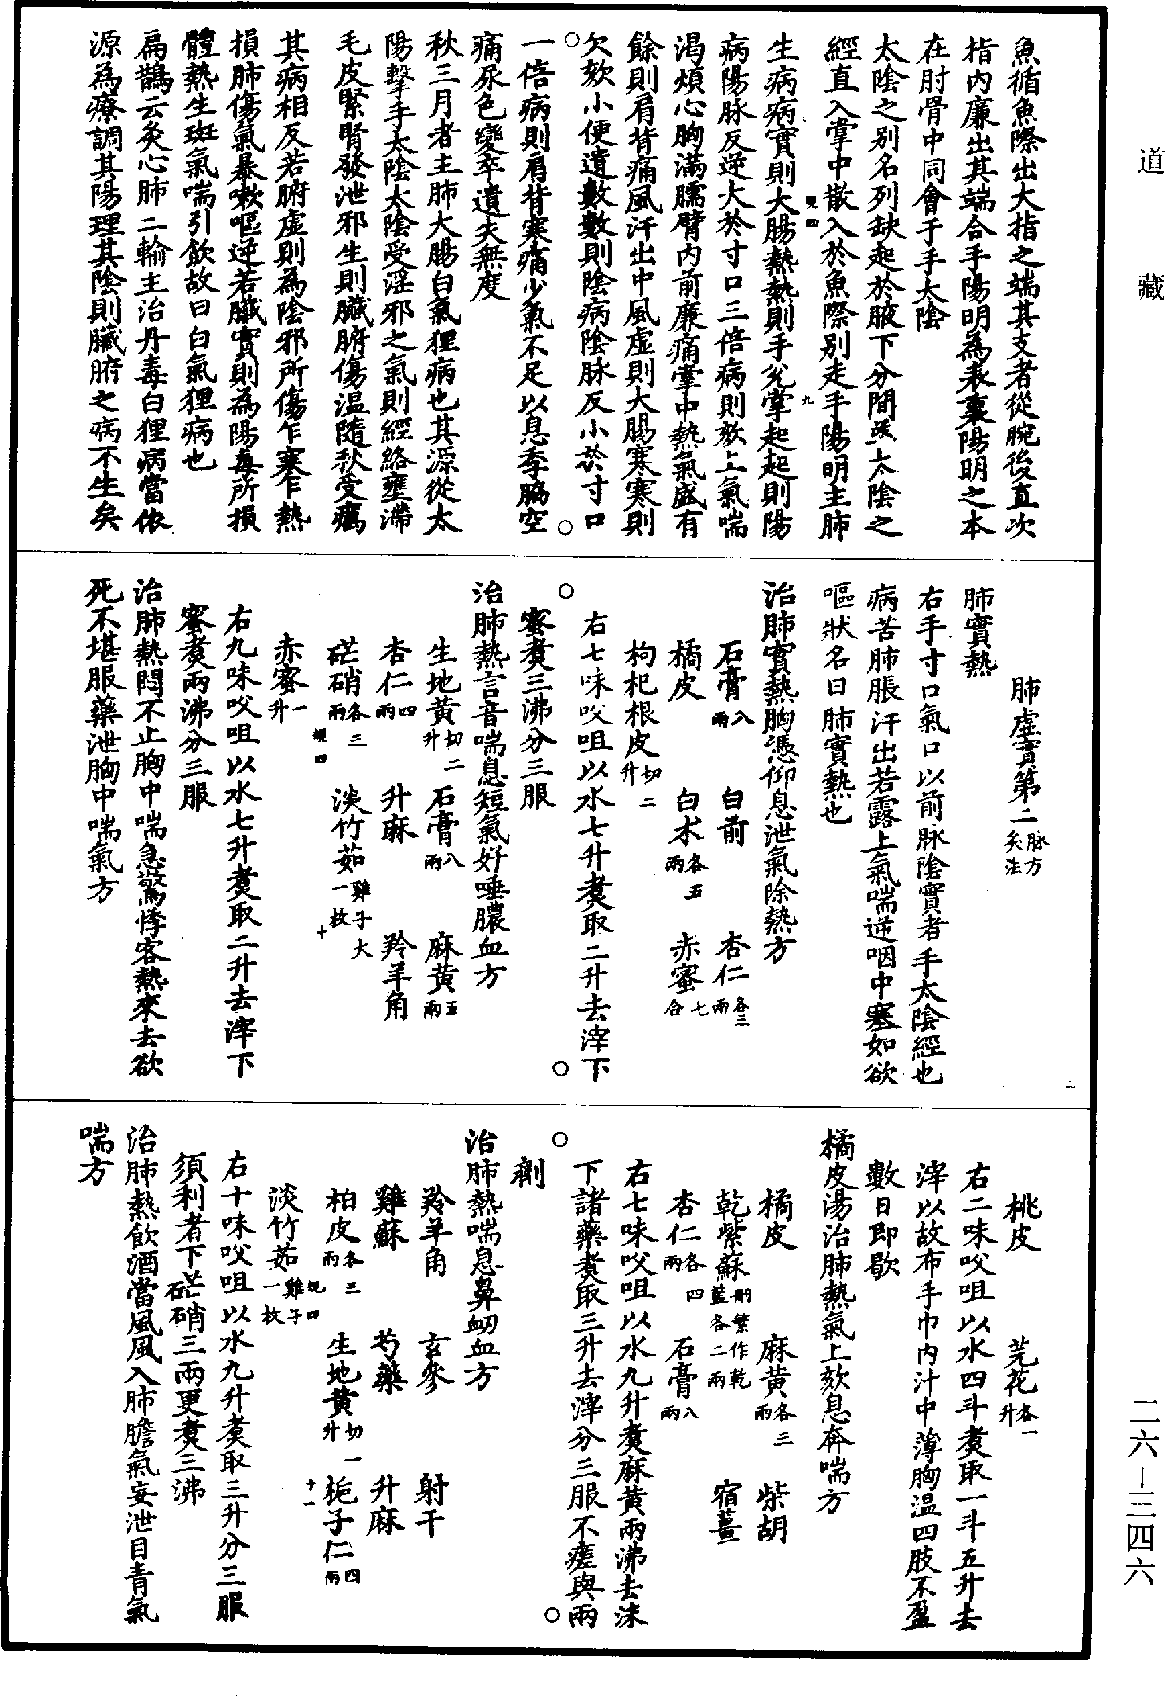 道藏
魚循魚際出大指之端其支者從腕後直次
指內廉出其端合手陽明為表裏陽明之本
在肘骨中同會于手太陰
太陰之別名列缺起於腋下分間並太陰之
經直入掌中散入於魚際別走手陽明主肺
生病病實則大腸熱熱則手兌掌起起則陽
病陽脉反逆大於寸口三倍病則欬上氣喘
渴煩心胸滿臑臂內前廉痛掌中熱氣盛有
餘則肩背痛風汗出中風虛則大腸寒寒則
欠欬小便遺數數則陰病陰脉反小於寸口
一倍病則肩背寒痛少氣不足以息季脇空
痛尿色變卒遺失無度
秋三月者主肺大腸白氣狸病也其源從太
陽擊手太陰太陰受淫邪之氣則經絡壅滯
毛皮緊腎發泄邪生則臟腑傷温隨秋受癘
其病相反若腑虛則為陰邪所傷乍寒乍熱
損肺傷氣暴嗽嘔逆若臟實則為陽毒所損
體熱生斑氣喘引飲故曰白氣狸病也
扁鵲云灸心肺二輸主治丹毒白狸病當依
源為療調其陽理其陰則臟腑之病不生矣
肺虛實第二 脉方灸法
肺實熱
右手寸口氣口以前脉陰實者手太陰經也
病苦肺脹汗出若露上氣喘逆咽中塞如欲
嘔狀名曰肺實熱也
治肺實熱胸憑仰息泄氣除熱方
石膏八兩 白前 杏仁各三兩
橘皮 白术各五兩 赤蜜七合
枸杞根皮切二升
右七味㕮咀以水七升煑取二升去滓下
蜜煑三沸分三服
治肺熱言音喘息短氣好唾膿血方
生地黄切二升 石膏八兩 麻黄五兩
杏仁四兩 升麻 羚羊角
芒硝各三兩 淡竹茹雞子大一枚
赤蜜一升
右九味㕮咀以水七升煑取二升去滓下
蜜煑兩沸分三服
治肺熱悶不止胸中喘急驚悸客熱來去欲
死不堪服藥泄胸中喘氣方
桃皮 芫花各一升
右二味㕮咀以水四斗煑取一斗五升去
滓以故布手巾內汁中薄胸温四肢不盈
數日即歇
橘皮湯治肺熱氣上欬息奔喘方
橘皮 麻黄各三兩 柴胡
乾紫蘇 宿薑
杏仁各四兩 石膏八兩
右七味㕮咀以水九升煑麻黄兩沸去沫
下諸藥煑取三升去滓分三服不瘥與兩
劑
治肺熱喘息鼻衂血方
羚羊角 玄參 射干
雞蘇 芍藥 升麻
柏皮各三兩 生地黄切一升 梔子仁四兩
淡竹茹雞子一枚
右十味㕮咀以水九升煑取三升分三服
須利者下芒硝三兩更煑三沸
治肺熱飲酒當風風入肺膽氣妄泄目青氣
喘方
二六—三四六